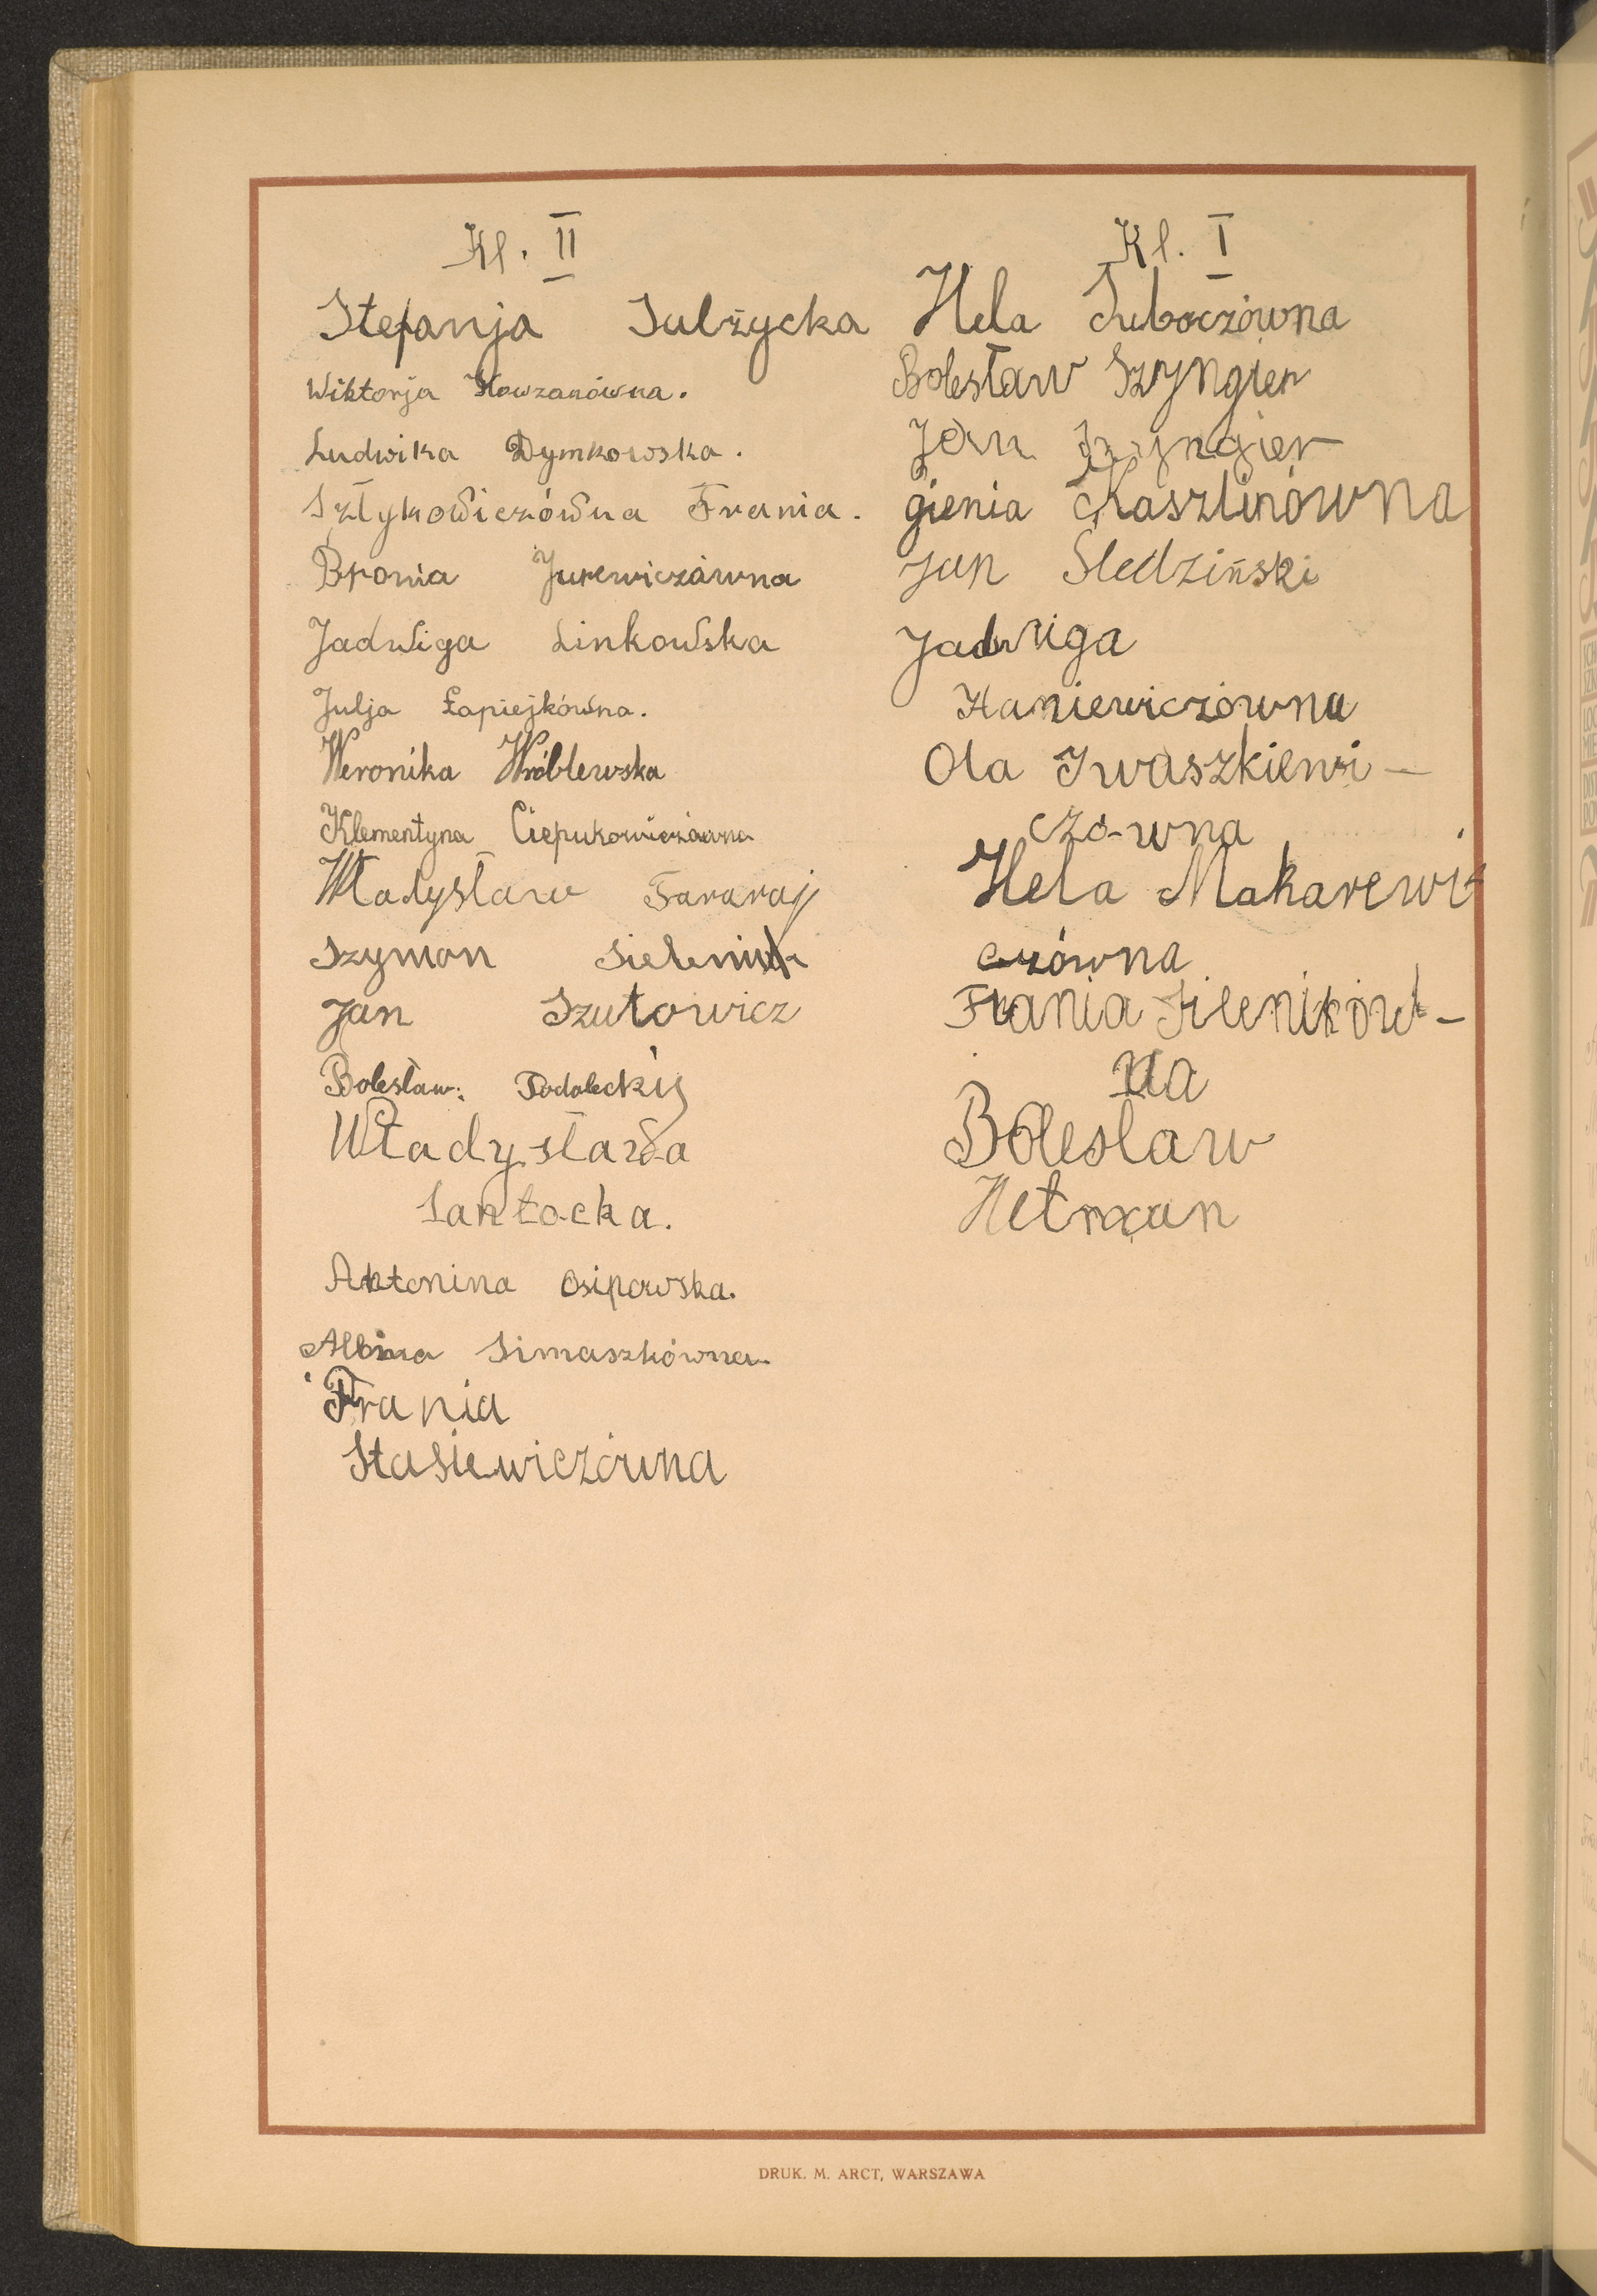 Kl. II
Stefanja Sulżycka
Wiktorja Kowzanówna.
Ludwika Dymkowska.
Sztykowiczówna Frania.
Bronia Jurewiczówna
Jadwiga Linkowska
Julja Łapiejkówna.
Weronika Wróblewska
Klementyna Ciepukowiczówna
Władysław Fararaj
Szymon Sieleniuk
Jan Szutowicz
Bolesław: Podolecki
Władysława
Santocka.
Antonina Osipowska.
Albina Simaszkówna
Frania
Stasiewiczówna
Kl. I
Hela Suboczówna
Bolesław Szyngier
Jan Szyngier
gienia Kaszlinówna
Jan Sledziński
Jadwiga
Haniewiczówna
Ola Iwaszkiewi-
czó-wna
Hela Makarewi
czówna
Frania
na
Boleslaw
Hetman
DRUK. M. ARCT, WARSZAWA